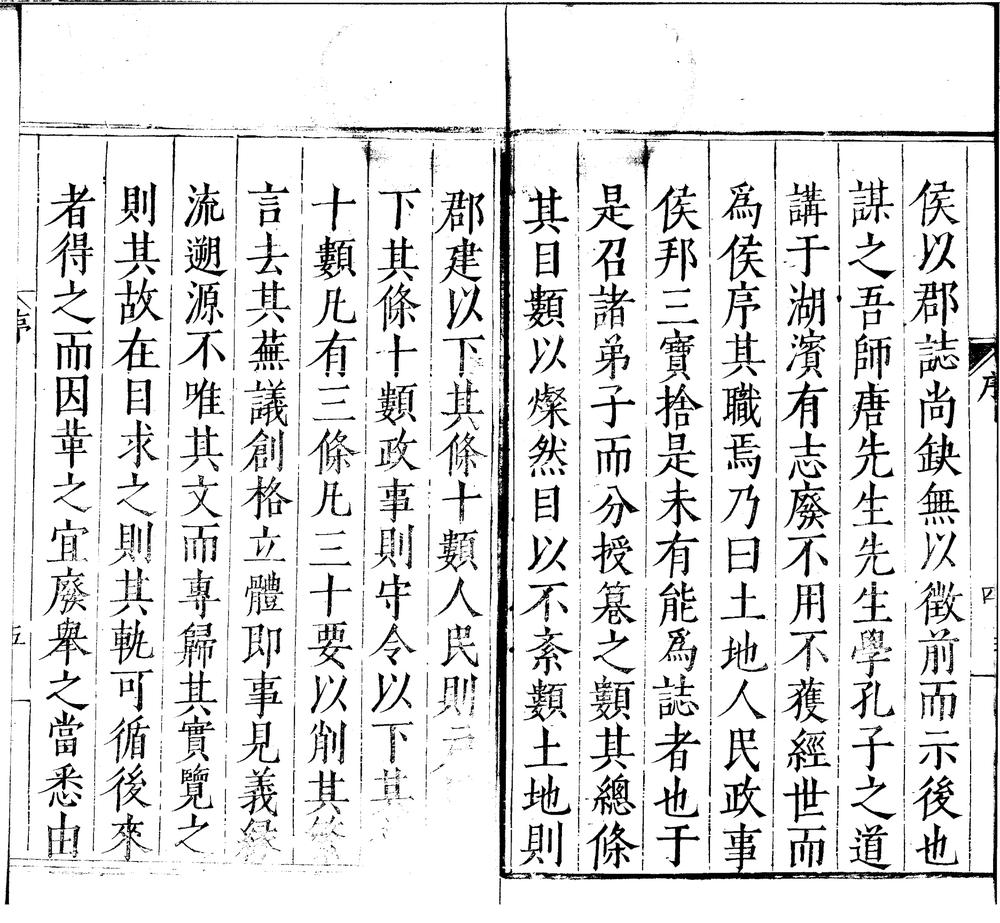 侯以郡誌尚缺無以徵前而示後也
謀之吾師唐先生先生學孔子之道
講于湖濱有志廢不用不獲經世而
爲侯序其職焉乃曰土地人民政事
侯邦三寶捨是未有能爲誌者也于
是召諸弟子而分授簒之纇其總條
其目纇以燦然目以不紊纇土地則
郡建以下其條十纇人民則
下其條十纇政事則守令以下其
十纇凡有三條凡三十要以削其
言去其蕪議創格立體即事見義緣
流遡源不唯其文而專歸其實覽之
則其故在目求之則其軌可循後來
者得之而因革之宜廢舉之當悉由
序
四
序
五